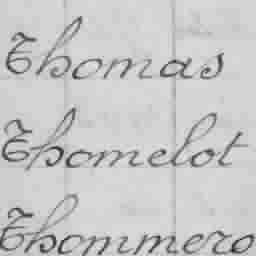 Thomas
Thomelot
Thommero